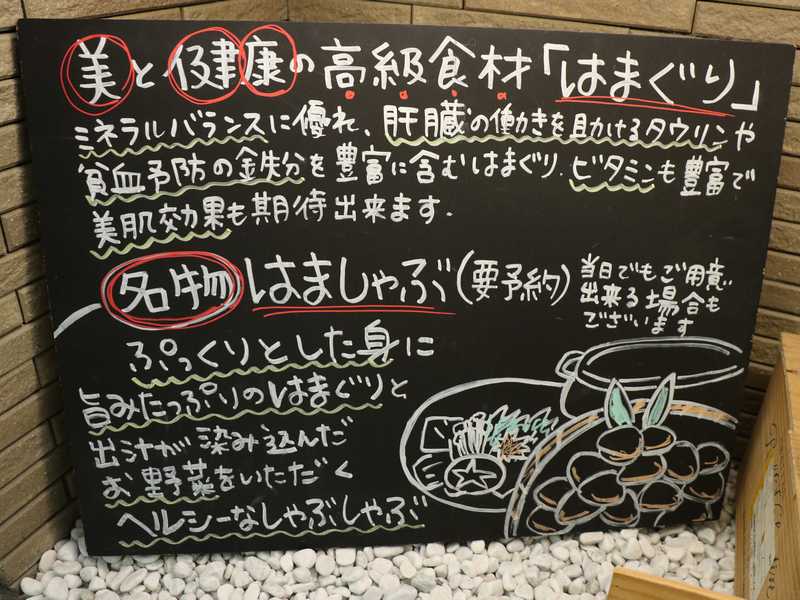 美と健康の高級食材「はまぐり」
ミネラルバランスに優れ、肝臓の働きを助けるタウリンや
貧血予防の鉄分を豊富に含むはまぐり.ビタミンも豊富で
美肌効果も期待出来ます.
名物はましゃぶ(要予約)
当日でもご用意
出来る場合も
ございます
ぷっくりとした身に
旨みたっぷりのはまぐりと
出汁が染み込んだ
お野菜をいただく
ヘルシーなしゃぶしゃぶ